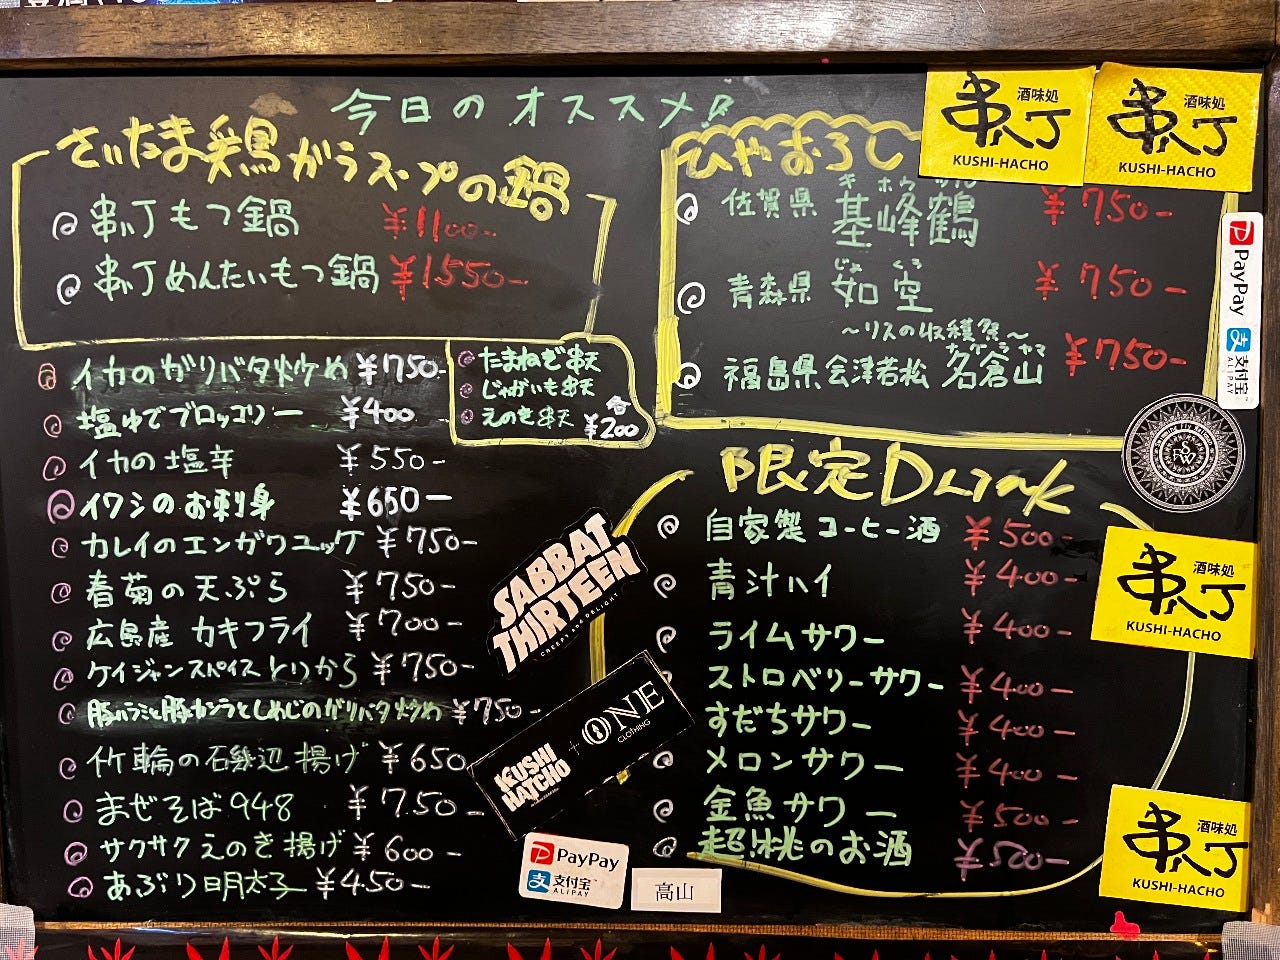 今日のオススメ!
さいたま鶏ガラスープの鍋
串八丁もつ鍋 ¥1100-
串八丁めんたいもつ鍋 ¥1550-
イカのガリバタ炒め ¥750-
塩ゆでブロッコリー ¥400
イカの塩辛 ¥550-
イワシのお刺身 ¥650-
カレイのエンガワユッケ ¥750-
春菊の天ぷら ¥750-
広島産カキフライ ¥700-
ケイジャンスパイスとりから ¥750-
豚ハラミと豚カシラとしめじのガリバタ炒め ¥750-
竹輪の石磯辺揚げ ¥650
まぜそば948 ¥750-
サクサクえのき揚げ ¥600-
あぶり明太子 ¥450-
たまねぎ串天
じゃがいも串天
えのき串天 各¥200
ひやおろし
佐賀県 基峰鶴 キホウツル ¥750-
青森県 如空 じょくう ¥750-
〜リスの収穫祭〜
福島県会津若松 名倉山 ナグラヤマ ¥750-
限定Drink
自家製コーヒー酒 ¥500-
青汁ハイ ¥400-
ライムサワー ¥400-
ストロベリーサワー ¥400-
すだちサワー ¥400-
メロンサワー ¥400-
金魚サワー ¥500-
超!桃のお酒 ¥500-
SABBAT
THIRTEEN
CREEPY AND DELIGHT
KUSHI
HATCHO
+ ONE
CLOTHING
PayPay
支付宝
ALIPAY
高山
酒味処
串八丁
KUSHI-HACHO
酒味処
串八丁
KUSHI-HACHO
PayPay
支付宝
ALIPAY
酒味処
串八丁
KUSHI-HACHO
酒味処
串八丁
KUSHI-HACHO